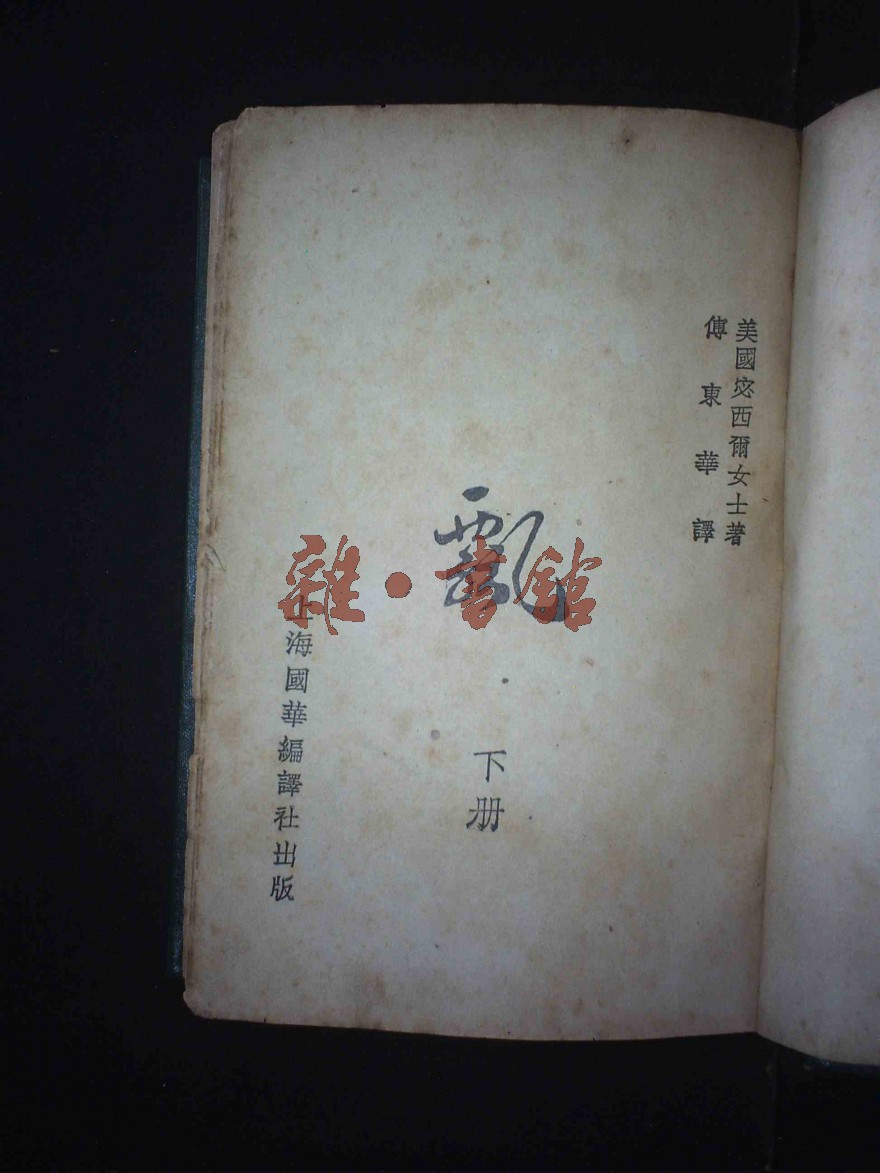 美國宓西爾女士著
傅東華譯
飄
下册
上海國華編譯社出版
雜·書館